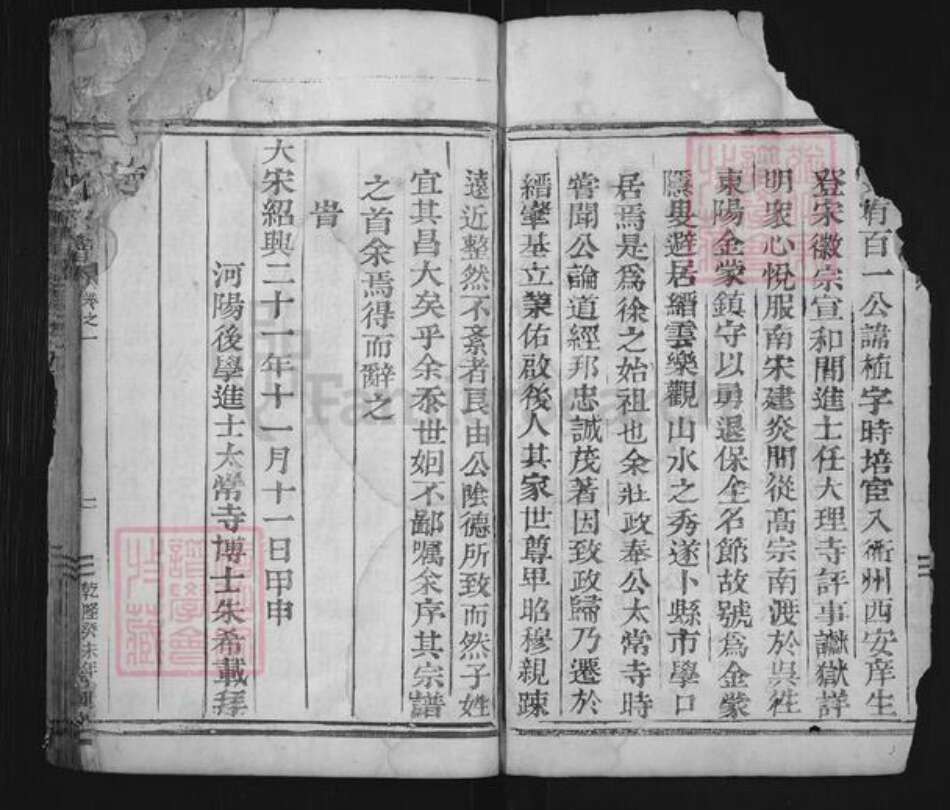 有百一公諱梳字時培宦入衢州西安庠生
登宋徽宗宣和間進士任大理寺評事讞獄詳
明衆心悅服南宋建炎間從高宗南渡於吳徃
東陽金蒙鎮守以勇退保全名節故號爲金蒙
隱叟避居縉雲樂觀山水之秀遂卜縣市學口
居焉是爲徐之始祖也余壯政奉公太常寺時
嘗聞公論道經邦忠誠茂著因致政歸乃遷於
縉肇基立業佑啟後人其家世尊卑昭穆親踈
遠近整然不紊者良由公陰德所致而然子姓
宜其昌大矣乎余忝世姻不鄙囑余序其宗譜
之首余焉得而辭之
旹
大宋紹興二十一年十一月十一日甲申
河陽後學進士太常寺博士朱希載拜
卷之一
乾隆癸未年